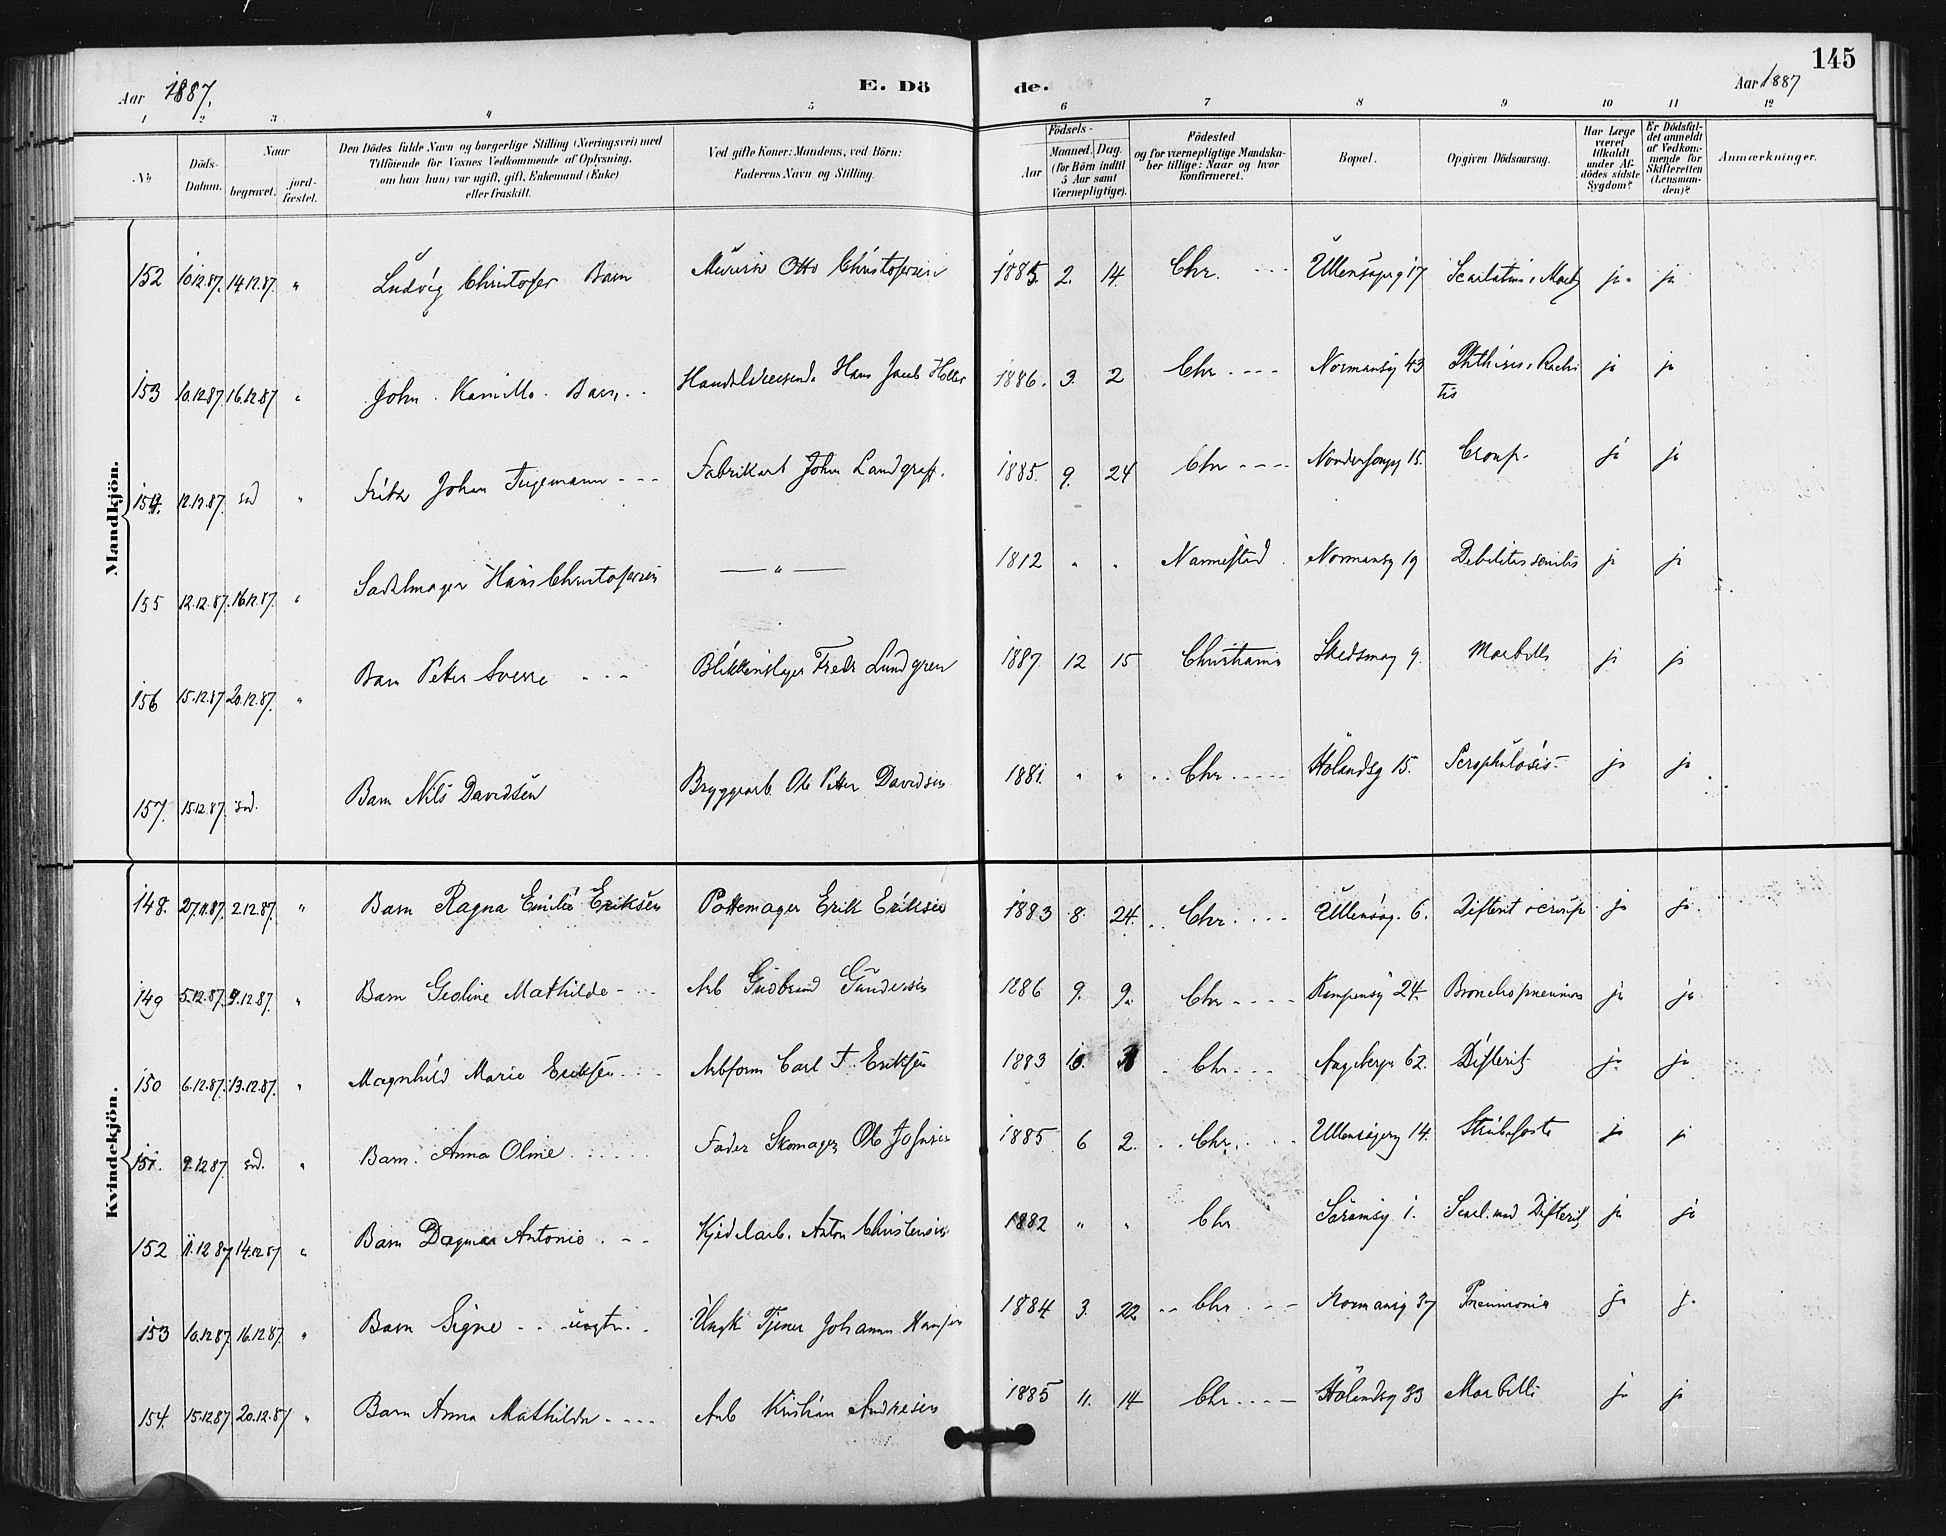 Aar 1887. E. Dö de. Aar 1887 145
1 2 3 4 5 6 7 8 9 10 11 12
No Döds-Datum. Naar begravet. jord-fæstet. Den Dödes fulde Navn og borgerlige Stilling (Næringsvei) med Tilföiende for Voxnes Vedkommende af Oplysning, om han (hun) var ugift, gift, Enkemand (Enke) eller fraskilt. Ved gifte Koner: Mandens, ved Börn: Faderens Navn og Stilling. Födsels- Aar Maaned. Dag. (for Börn indtil 5 Aar samt Værnepligtige). Födested og for værnepligtige Mandskaber tillige: Naar og hvor konfirmeret. Bopæl. Opgiven Dödsaarsag. Har Læge været tilkaldt under Afdödes sidste Sygdom? Er Dödsfaldet anmeldt af Vedkommende for Skifteretten (Lensmanden)? Anmærkninger.
Mandkjön.
152 10.12.87. 14.12.87. " Ludvig Christofer Barn Murersv Otto Christofersen 1885. 2. 14. Chr. --- Ullensagerg 17 Scarlatina, ja ja
153 10.12.87. 16.12.87 " John Kamillo. Barn. Handelsreisende Hans Jacob Holter 1886. 3. 2 Chr ---- Normansg 43 Phthisis, Rachitis ja ja
154. 12.12.87. sd " Fritz Johan Tugemann --- Fabrikarb John Landgraff. 1885. 9. 24 Chr ---- 15. Croup. ja ja
155 12.12.87. 16.12.87. " Sadelmager Hans Christofersen — " — 1812 " " Nannestad. Normansg 19 Debilitas senilis ja ja
156 15.12.87 20.12.87. " Barn Peter Sverre --- Blikkenslager Fredr Lundgren 1887. 12 15 Christiania Skedsmog 9. Morbilli ja ja
157. 15.12.87. sd. Barn Nils Davidsen Bryggearb. Ole Petter Davidsen 1881. " " .. Chr. ---- Hölandsg 15. Scrophulosis- ja ja
Kvindekjön.
148. 27.11.87. 2.12.87. " Barn Ragna Emilie Eriksen Pottemager Erik Eriksen 1883 8. 24. .. Chr. ---- Ullensag. 6. Difterit croup ja ja
149 5.12.87. 9.12.87. " Barn Gedine Mathilde - Arb Gudbrand Gundersen 1886 9. 9. Chr ---- Kampensg 24. Bronchopneumoni ja ja
150 6.12.87. 13.12.87. " Magnhild Marie Eriksen Arbform Carl F. Eriksen 1883 10. . Chr. --- Aagebergv 62. Difterit ja ja
151. 9.12.87 sd. " Barn. Anna Oline Fader Skomager Ole Johnsen 1885. 6 2. .. Chr. Ullensagerg 14. Strubehoste ja ja
152 11.12.87. 14.12.87 " Barn Dagmar Antonie. -- Kjedelarb. Anton Christensen 1882 " " Chr Sörumsg 1. Scarl. med Difterit, ja ja
153 10.12.87. 16.12.87. " Barn Signe .. uegte. Ungk Tjener Johannes Hansen 1884 3. 22 -- Chr. --- Normansg 37 Pneumonia ja ja
154. 15.12.87. 20.12.87 " Barn Anna Mathilde ---- Arb Kristian Andresen 1885 11. 14 Chr. --- Hölandsg 33 Morbilli ja ja